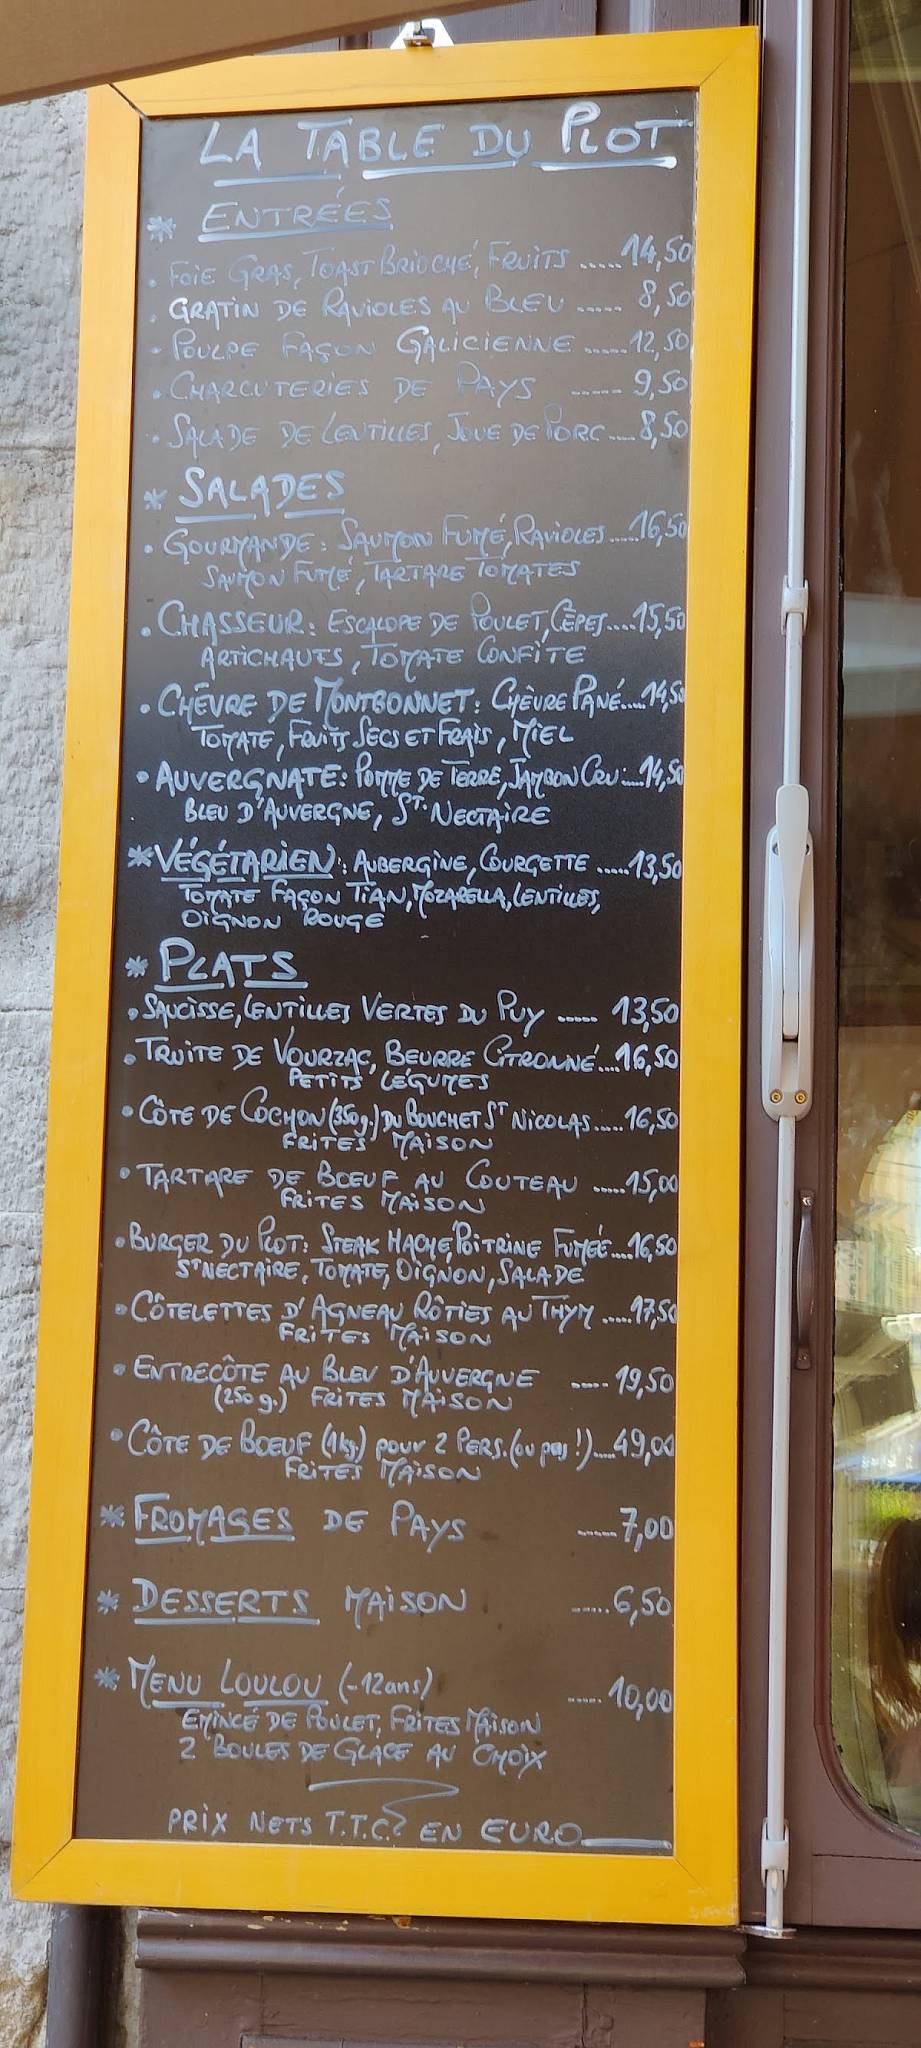 LA TABLE DU PLOT
* ENTRÉES
. FOIE GRAS, TOAST BRIOCHÉ, FRUITS .....14,50
. GRATIN DE RAVIOLES AU BLEU ..... 8,50
. POULPE FAÇON GALICIENNE .....12,50
. CHARCUTERIES DE PAYS ..... 9,50
. SALADE DE LENTILLES, JOUE DE PORC .... 8,50
* SALADES
. GOURMANDE : SAUMON FUMÉ, RAVIOLES .....16,50
SAUMON FUMÉ, TARTARE TOMATES
. CHASSEUR : ESCALOPE DE POULET, CÈPES ....15,50
ARTICHAUTS, TOMATE CONFITE
. CHÈVRE DE MONTBONNET : CHÈVRE PANÉ.....14,50
TOMATE, FRUITS SECS ET FRAIS, MIEL
. AUVERGNATE : POMME DE TERRE, JAMBON CRU ....14,50
BLEU D'AUVERGNE, ST. NECTAIRE
* VÉGÉTARIEN : AUBERGINE, COURGETTE .....13,50
TOMATE FAÇON TIAN, MOZARELLA, LENTILLES,
OIGNON ROUGE
* PLATS
. SAUCISSE, LENTILLES VERTES DU PUY ..... 13,50
. TRUITE DE VOURZAC, BEURRE CITRONNÉ ....16,50
PETITS LÉGUMES
. CÔTE DE COCHON (350g.) DU BOUCHET ST NICOLAS .....16,50
FRITES MAISON
. TARTARE DE BOEUF AU COUTEAU .....15,00
FRITES MAISON
. BURGER DU PLOT : STEAK HACHÉ, POITRINE FUMÉE ....16,50
ST NECTAIRE, TOMATE, OIGNON, SALADE
. CÔTELETTES D'AGNEAU RÔTIES AU THYM .....17,50
FRITES MAISON
. ENTRECÔTE AU BLEU D'AUVERGNE .....19,50
(250 g.) FRITES MAISON
. CÔTE DE BOEUF (1kg.) pour 2 PERS. (ou pas !).....49,00
FRITES MAISON
* FROMAGES DE PAYS .....7,00
* DESSERTS MAISON .....6,50
* MENU LOULOU (-12 ans) ..... 10,00
EMINCÉ DE POULET, FRITES MAISON
2 BOULES DE GLACE AU CHOIX
PRIX NETS T.T.C. EN EURO